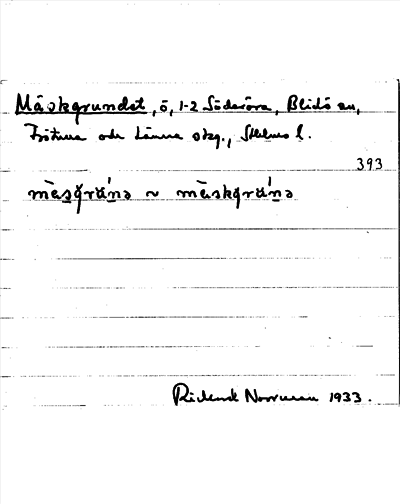 Måskgrundet, ö, 1-2 Söderöra, Blidö sn,
Frötuna och Länna skg., Sthlms l.
393
mèsgrúnə ~ mèskgrúnə
Rickard Norrman 1933.